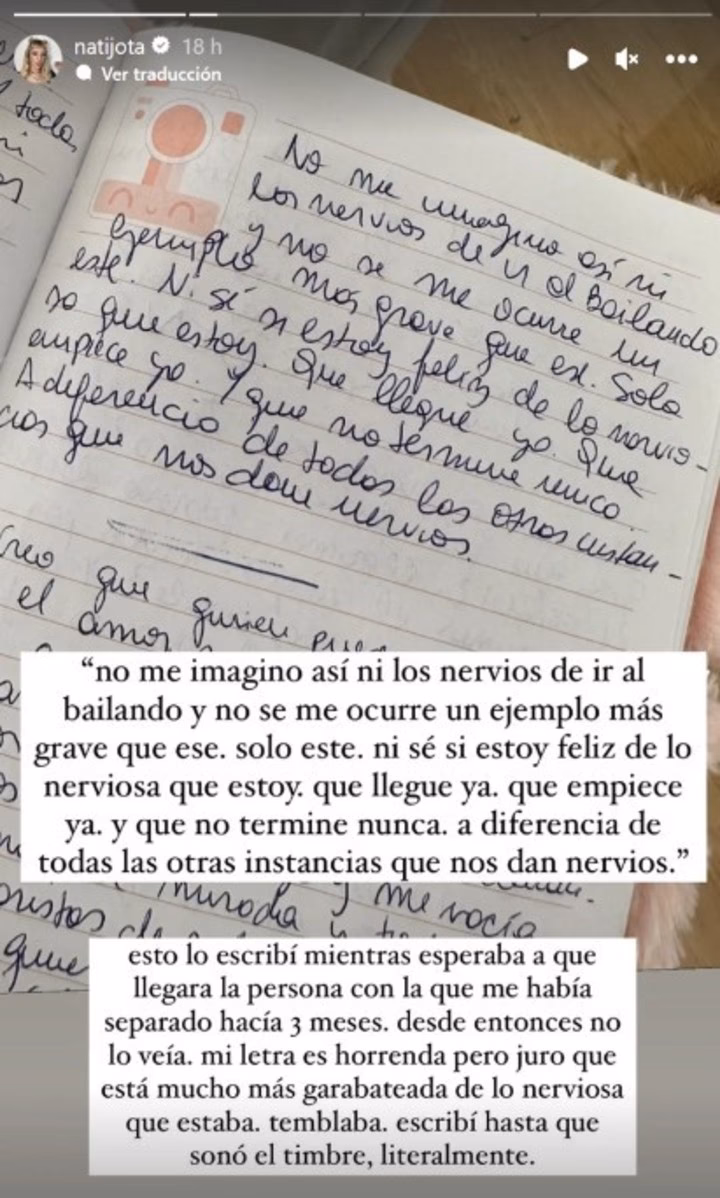 natijota 18 h
Ver traducción
toda,
No me imagino así ni
los nervios de ir al Bailando
y no se me ocurre un
ejemplo más grave que ese. Solo
este. Ni sé si estoy feliz de lo nervio-
sa que estoy. Que llegue ya. Que
empiece ya. Y que no termine nunca.
A diferencia de todas las otras instan-
cias que nos dan nervios.
Creo que quien
el amor
“no me imagino así ni los nervios de ir al
bailando y no se me ocurre un ejemplo más
grave que ese. solo este. ni sé si estoy feliz de lo
nerviosa que estoy. que llegue ya. que empiece
ya. y que no termine nunca. a diferencia de
todas las otras instancias que nos dan nervios.”
y me vacía
que
esto lo escribí mientras esperaba a que
llegara la persona con la que me había
separado hacía 3 meses. desde entonces no
lo veía. mi letra es horrenda pero juro que
está mucho más garabateada de lo nerviosa
que estaba. temblaba. escribí hasta que
sonó el timbre, literalmente.